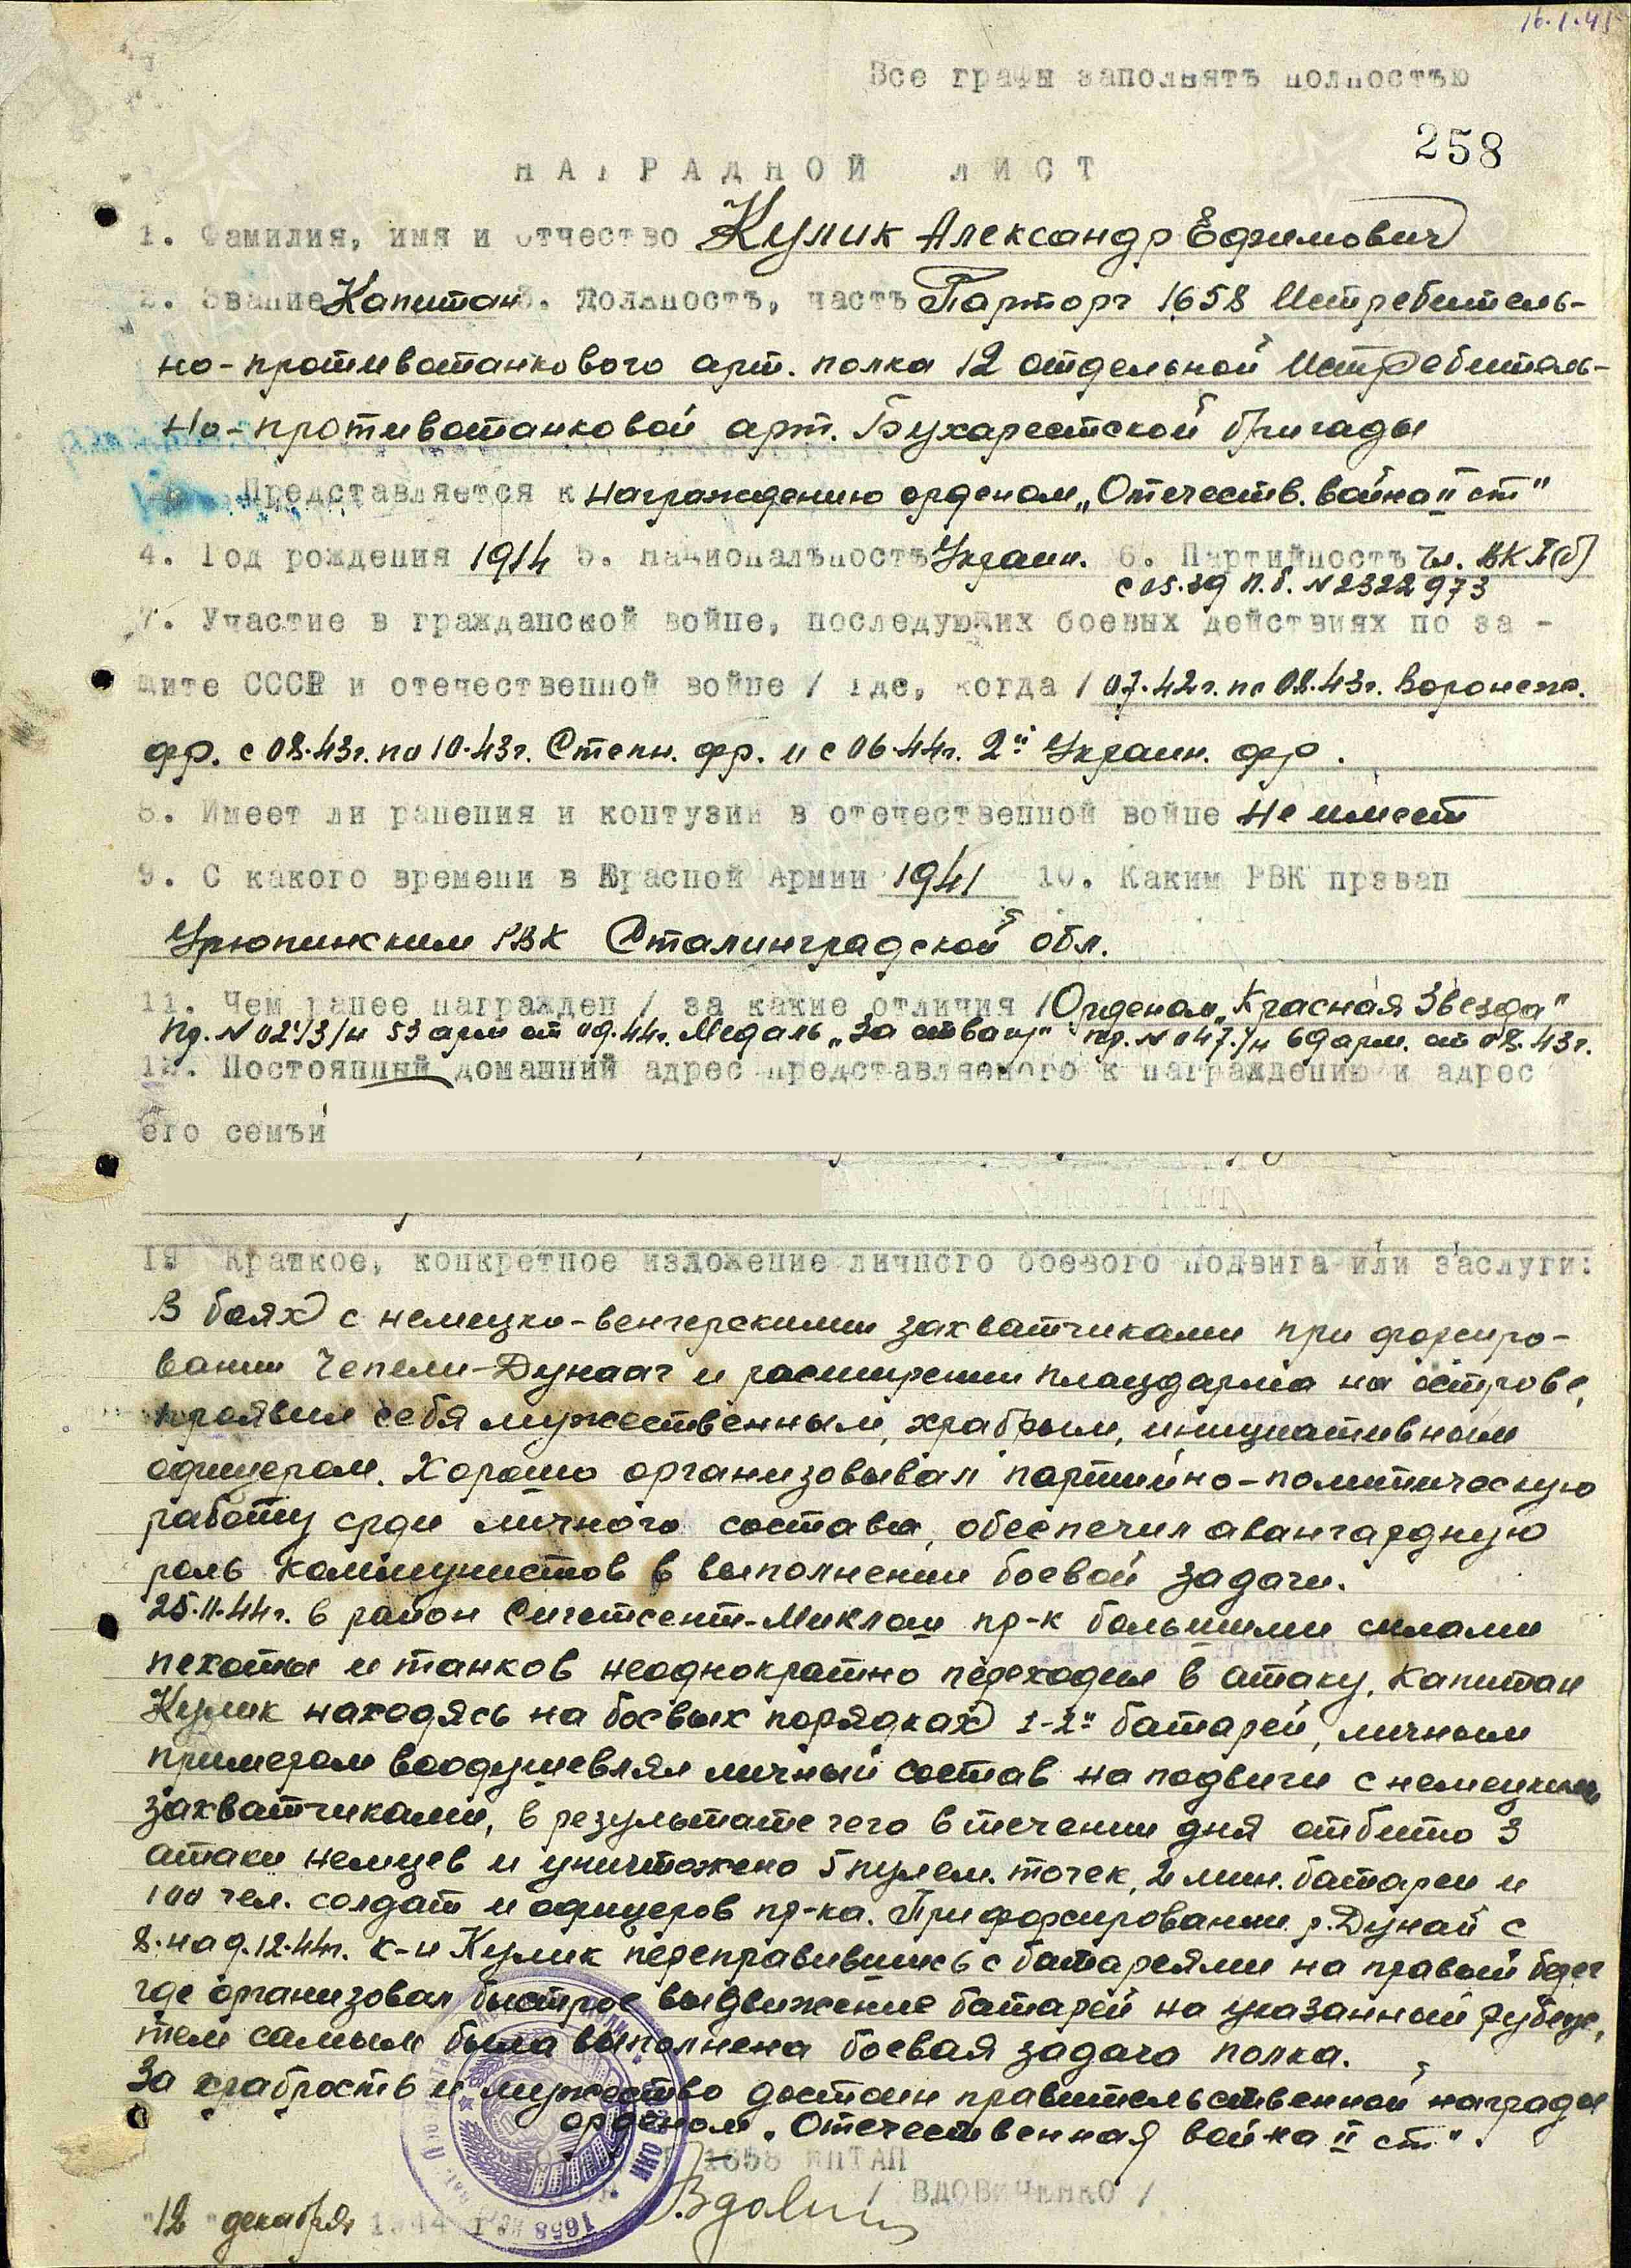 16.1.45
Все графы заполнять полностью
258
НАГРАДНОЙ ЛИСТ
1. Фамилия, имя и отчество Кулик Александр Ефимович
2. Звание Капитан 3. Должность, часть Парторг 1658 Истребитель-
но-противотанкового арт. полка 12 отдельной Истребитель-
но-противотанковой арт. Бухарестской бригады
Представляется к награждению орденом „Отечеств. война II ст"
4. Год рождения 1914 5. Национальность Украин. 6. Партийность Чл. ВКП(б)
с 05.39 п.б. №2322973
7. Участие в гражданской войне, последующих боевых действиях по за -
щите СССР и отечественной войне / где, когда / 07.42г. по 08.43г. Воронеж.
фр. с 08.43г. по 10.43г. Степн. фр. и с 06.44г. 2й Украин. фр.
8. Имеет ли ранения и контузии в отечественной войне Не имеет
9. С какого времени в Красной Армии 1941 10. Каким РВК призван
Урюпинским РВК Сталинградской обл.
11. Чем ранее награжден / за какие отличия / Орденом „Красная Звезда"
Пр. № 02/3/н 53 арм от 09.44г. Медаль „За отвагу" пр. № 047/н 69 арм. от 08.43г.
12. Постоянный домашний адрес представляемого к награждению и адрес
его семьи
13 Краткое, конкретное изложение личного боевого подвига или заслуги:
В боях с немецко-венгерскими захватчиками при форсиро-
вании Чепели-Дунааг и расширении плацдарма на острове,
проявил себя мужественным, храбрым, инициативным
офицером. Хорошо организовывал партийно-политическую
работу среди личного состава, обеспечил авангардную
роль коммунистов в выполнении боевой задачи.
25.11.44г. в район Сигетсент-Миклош пр-к большими силами
пехоты и танков неоднократно переходил в атаку. Капитан
Кулик находясь на боевых порядках 1-2й батарей, личным
примером воодушевлял личный состав на подвиги с немецкими
захватчиками, в результате чего в течении дня отбито 3
атаки немцев и уничтожено 5 пулем. точек, 2 мин. батареи и
100 чел. солдат и офицеров пр-ка. При форсировании р. Дунай с
8. на 9.12.44г. к-н Кулик переправившись с батареями на правый берег
где организовал быстрое выдвижение батарей на указанный рубеж,
тем самым была выполнена боевая задача полка.
За храбрость и мужество достоин правительственной награды
орденом „Отечественная война II ст".
1658 ИПТАП
/ ВДОВИЧЕНКО /
"12" декабря 1944 г.